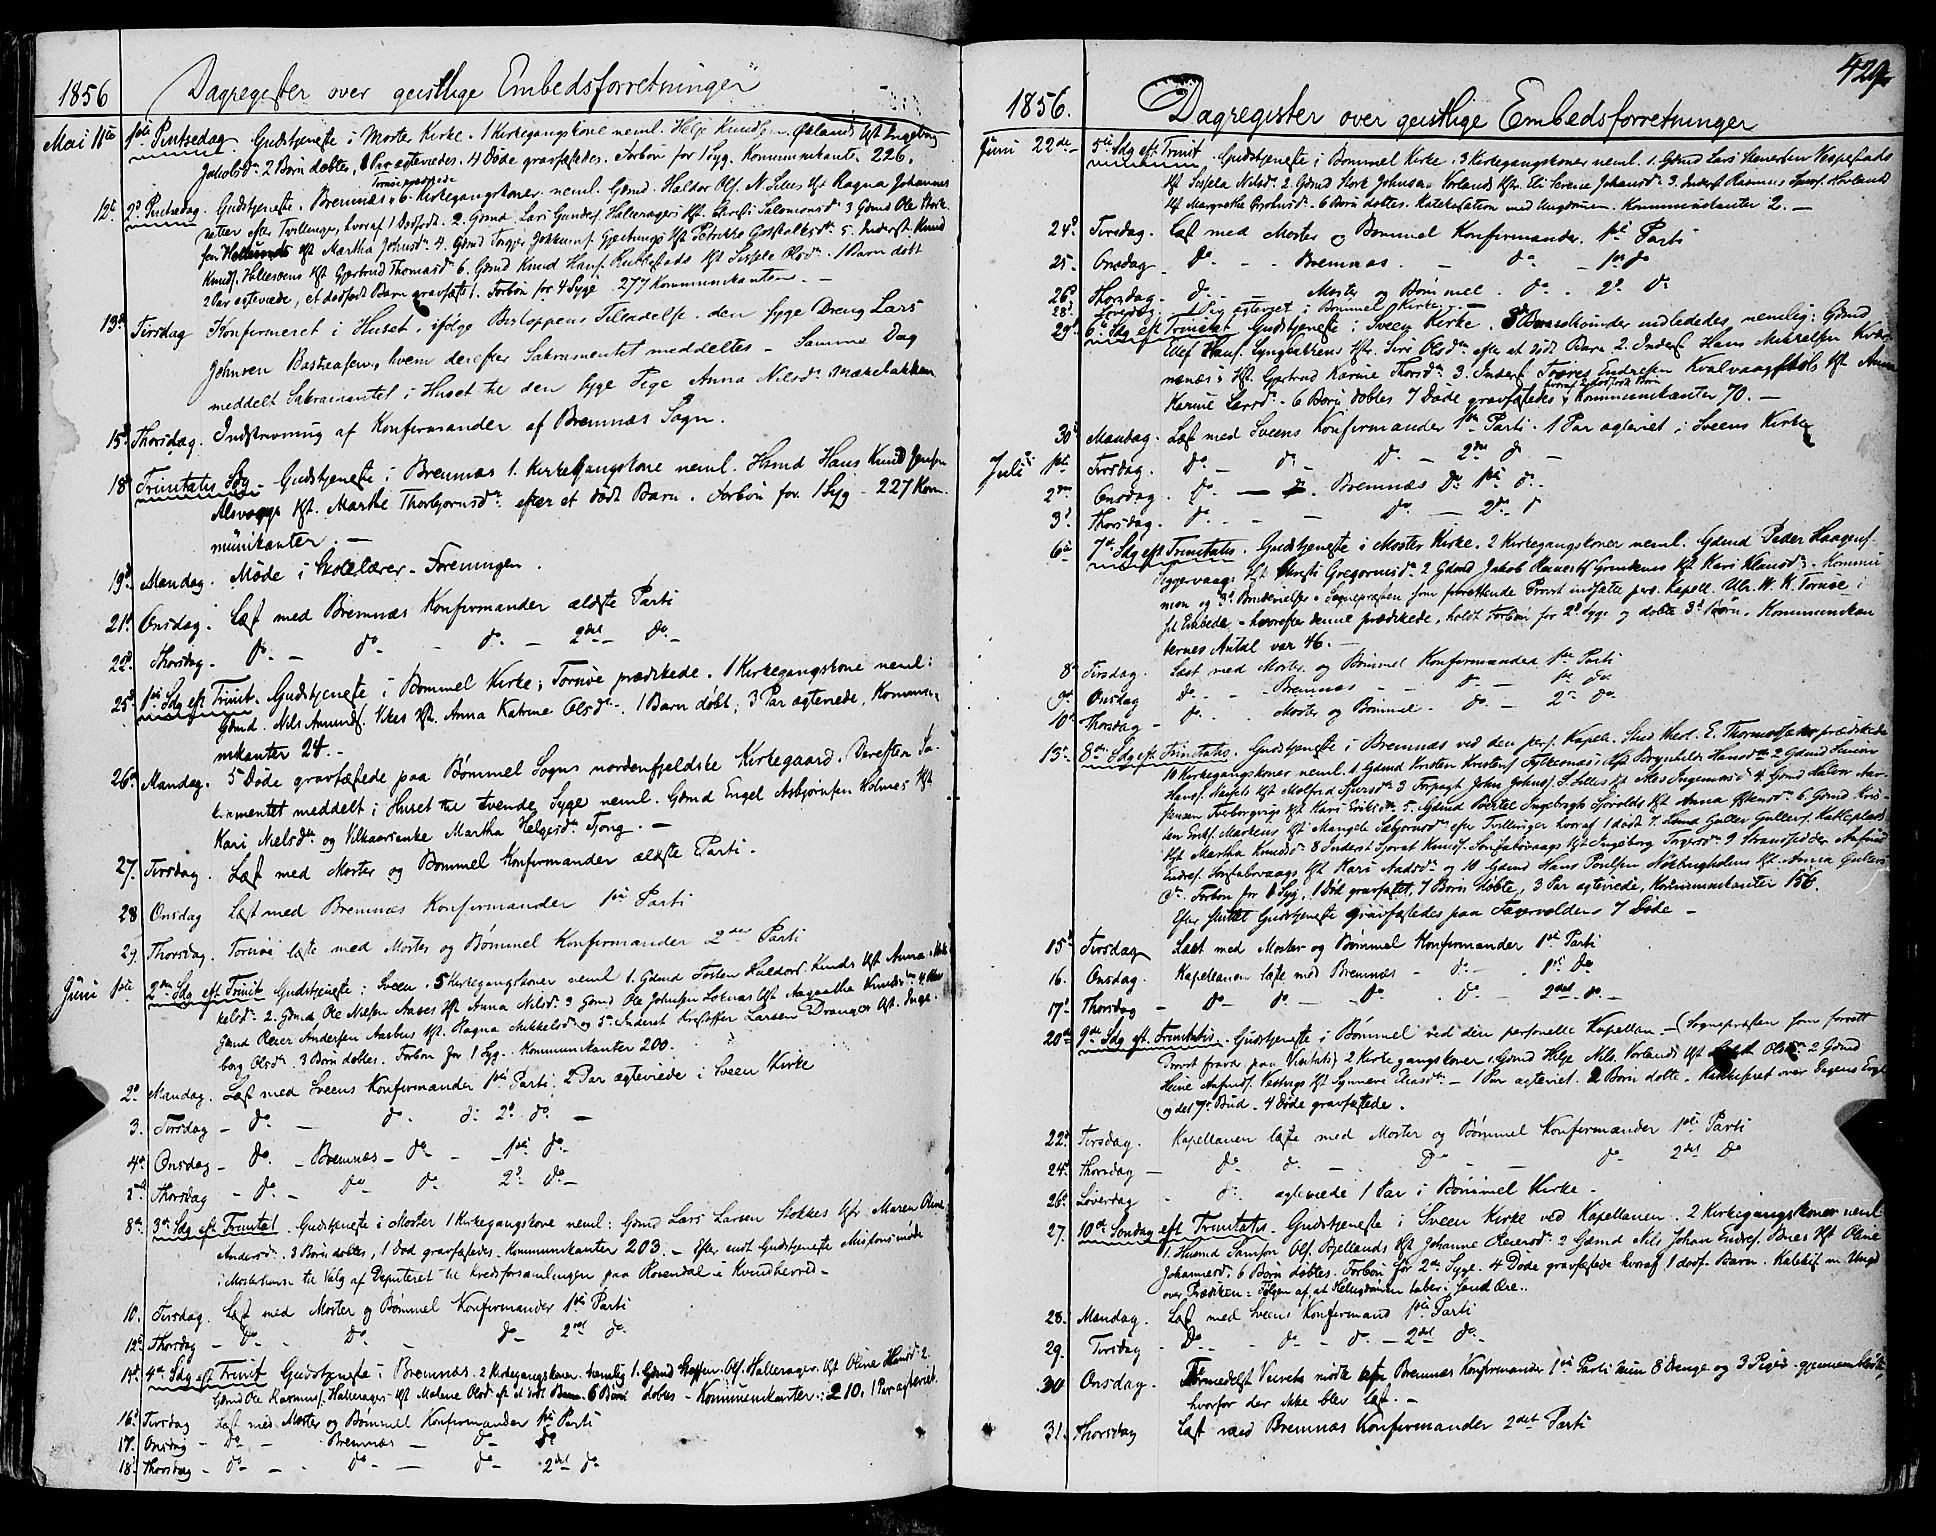 1856
Dagregister over geistlige Embedsforretninger
Mai 11te 1ste Pintsedag. Gudstjeneste i Moster Kirke. 1 Kirkegangskone neml. Helje Knuds. Øklands Hst Ingeborg
Jakobsdr. 2 Børn døbtes, Par ægteviedes. 4 Døde gravfæstedes. Forbøn for 1 Syg. Kommunikanter 226.
Tornøe prædikede
12te 2d Pintsedag. Gudstjeneste i Bremnæs, 6 Kirkegangskoner neml. Gdmd. Haldor Ols. N. Hst Ragna Johannes
datter efter Tvillinger, hvoraf 1 dødfødt. 2. Gdmd. Lars Gunders. Hallerager Hst. Salomonsd. 3 Gdmd Ole
Hst Martha Johnsdr. 4. Gdmd Jokkums. Hst Petrikke Gotskalksdr. 5. Inderst Knud
Knuds. Hst Gjertrud Thomasdr 6. Gdmd Knud Hans. Hst Sissele Olsdr. 1 Barn døbt
2 Par ægteviede, et dødfødt Barn gravfæstet. Forbøn for 4 Syge. 277 Kommunikanter. —
13d Tirsdag Konfirmeret i Huset, ifølge Biskoppens Tilladelse, den syge Dreng Lars
Johnsen, hvem derefter Sakramentet meddeltes - Samme Dag
meddelt Sakramentet i Huset til den syge Pige Anna Nilsdr.
15d Thorsdag. Indskrivning af Konfirmander af Bremnæs Sogn.
18d Trinitatis Sdg. Gudstjeneste i Bremnæs 1. Kirkegangskone neml. Hsmd Hans Knud
Hst. Marthe Thorbjørnsdr. efter et dødt Barn. Forbøn for 1 Syg - 227 Kom
munikanter. —
19d Mandag. Møde i Skolelærer-Foreningen.
21d Onsdag. Læst med Bremnæs Konfirmander ældste Parti
22d Thorsdag. do — do — do — 2det do —
25d 1ste Sdg eft Trinit. Gudstjeneste i Bømmel Kirke; Tornøe prædikede. 1 Kirkegangskone neml:
Gdmd. Nils Amunds. Hst. Anna Katrine Olsdr. 1 Barn døbt, 3 Par ægteviede, Kommu-
nikanter 24. -
26d Mandag. 5 Døde gravfæstede paa Bømmel Sogns nordenfjeldske Kirkegaard. Derefter Sa-
kramentet meddelt i Huset til tvende Syge neml. Gdmd Engel Asbjørnsen Holmes Hst
Kari Nielsdr og Vilkaarsenke Martha Helgesdr. —
27. Tirsdag. Læst med Moster og Bømmel Konfirmander ældste Parti.
28 Onsdag Læst med Bremnæs Konfirmander 1ste Parti
29. Thorsdag. Tornøe læste med Moster og Bømmel Konfirmander 2det Parti
Juni 1ste 2den Sdg eft Trinit. Gudstjeneste i Sveen. 5 Kirkegangskoner neml 1. Gdmd Torsten Haldors. Hst Anna
kelsdr. 2. Gdmd Ole Nielsen Aases Hst Anna Nilsdr. 3 Gdmd Ole Johnsen Hst Aagaathe Knudsdr 4.
Gdmd Reier Andersen Hst. Ragna Mikkelsdr og 5te Inderst Kristoffer Larsen Hst. Inge-
borg Olsdr. 3 Børn døbtes. Forbøn for 1 Syg. Kommunikanter 200.
2d Mandag. Læst med Sveens Konfirmander 1ste Parti, 2 Par ægteviede i Sveen Kirke
3. Tirsdag — do — do. do 2d do —
4d Onsdag — do. — Bremnæs — do — 1ste do
5te Thorsdag — do — do do 2d do —
8de 3de Sdg eft Trinitat. Gudstjeneste i Moster 1 Kirkegangskone neml: Gdmd Lars Larsen Stokkes Hst. Maren Oline
Andersdr. 3 Børn døbtes, 1 Død gravfæstedes. Kommunikanter 203. — Efter endt Gudstjeneste Missionsmøde
i Mosterhavn til Valg af Deputeret til Kredsforsamlingen paa Rosendal i Kvindherred. —
10. Tirsdag. Læst med Moster og Bømmel Konfirmander 1ste Parti
12te Thorsdag — do — do — do — 2det do.
15de 4de Sdg eft Trinit Gudstjeneste i Bremnæs. 2 Kirkegangskoner. nemlig 1. Gdmd Steffen Ols. Hallerager Hst Oline Hansd. 2
Gdmd Ole Rasmus. Hallerager Hst Malene Olsd eft et dødt Barn. 6 Børn døbtes - Kommunikanter: 210, 1 Par ægteviet.
16d Tirsdag Læst med Moster og Bømmel Konfirmander 1ste Parti
17. Onsdag — do — Bremnæs — do do
18d Thorsdag — do — do — do 2det do
429
1856.
Dagregister over geistlige Embedsforretninger
Juni 22de — 5te Sdg eft Trinit. Gudstjeneste i Bømmel Kirke. 3 Kirkegangskoner neml. 1. Gdmd Lars Vespestads
Hst Sissela Nilsdr. 2. Gdmd Stork Johnsen Vorlands Hst. Eli Serine Johansdr. 3. Inderst Rasmus Hovland
Hst Margrethe 6 Børn døbtes. Katekisation med Ungdommen. Kommunikanter 2. —
24d Tirsdag. Læst med Moster og Bømmel Konfirmander. 1ste Parti
25. Onsdag — do — Bremnæs — do — 1ste do
26d Thorsdag. do — Moster og Bømmel. do. 2d do
28d Løverdag. Liig i Bømmel Kirke. —
29d 6te Sdg eft Trinitat Gudstjeneste i Sveen Kirke. 3 Barselkvinder indlededes, nemlig: Gdmd
Ulef Hans. Hst. Siri Olsdr efter et dødt Barn 2. Inderst Hans Mikkelsen
Hst. Gjertrud Karine Thorsdr 3. Inderst Tværes Endresen Kvalvaag Hst Anna
Karine Larsdr. 6 Børn døbtes 7 Døde gravfæstedes, hvoraf 2 dødfødte Børn Kommunikanter 70. —
30d Mandag. Læst med Sveens Konfirmander 1ste Parti. 1 Par ægteviet i Sveens Kirke
Juli 1ste Tirsdag. do — do do — 2den do —
2den Onsdag. do. — Bremnæs do 1ste do.
3d Thorsdag. do. — do. — 2de do
6te 7de Sdg eft Trinitatis. Gudstjeneste i Moster Kirke. 2 Kirkegangskoner neml. Gdmd Peder Haagens.
Hst Kirsti Gregoriusdr. 2 Gdmd Jakob Hst Kari Klausdr. Kommu
nion og 3d Brudevielse. Sognepræsten som forrettende Provst indsatte pers. Kapell. W. K. Tornøe i
sit Embede - hvorefter denne prædikede, holdt Forbøn for 2d Syge og døbte 3d Børn. Kommunikan
ternes Antal var 46. —
8de Tirsdag. Læst med Moster og Bømmel Konfirmander 1ste Parti
9de Onsdag do — Bremnæs — do — 1ste do
10de Thorsdag — do. Moster og Bømmel. do. — 2de do.
13de 8de Sdg eft Trinitatis. Gudstjeneste i Bremnæs ved den pers. Kapel. Stud theol. E. Thormodsæter prædikede
10 Kirkegangskoner neml. 1. Gdmd Kristen Kristens. Fylkesnæs Hst Brynhilde Hansdr 2 Gdmd Simon
Hans. Hst Molfrid Sjursdr 3 Forpagt. John Johns. S. Hst Ales Ingemorsd 4. Gdmd Halvor Aar-
Hst Kari Eriksdr. 5. Gdmd Bertel Ingebrigts Hst Anna Østensdr. 6. Gdmd Kris-
ten Hst Mangele Sæbjørnsdr efter Tvillinger hvoraf 1 dødt 7. Lmd Guller Gullers. Katleplads
Hst Martha Knudsdr. 8 Inderst Sjovat Knuds. Hst Ingeborg 9 Strandsidder
Endres. Hst Kari Aadsdr og 10 Gdmd Hans Poulsen Hst. Anna Gullers
dr. Forbøn for 1 Syg, 1 Død gravfæstet, 7 Børn døbte, 3 Par ægteviede, Kommunikanter 156.
Efter sluttet Gudstjeneste gravfæstedes paa 7 Døde —
15d Tirsdag Læst med Moster og Bømmel Konfirmander 1ste Parti
16. Onsdag. Kapellanen læste med Bremnæs — do — 1ste do
17d Thorsdag — do — do — do. do — 2det do —
20de 9de Sdg eft. Trinitatis. Gudstjeneste i Bømmel ved den personelle Kapellan — (Sognepræsten som forrett
Provst fravær. paa Visitats) 2 Kirkegangskoner, 1. Gdmd Helje Nils. Vorlands Hst Olsdr 2 Gdmd
Heine Hst Synneve Eliasdr. — 1 Par ægteviet. 2 Børn døbte. Katekiseret over Dagens Evgl
og det 7de Bud. 4 Døde gravfæstede.
22d Tirsdag. Kapellanen læste med Moster og Bømmel Konfirmander 1ste Parti
24d Thorsdag — do do. — do — do 2det do
26d Løverdag - do. ægteviede 1 Par i Bømmel Kirke -
27. 10de Søndag eft Trinitatis. Gudstjeneste i Sveen Kirke ved Kapellanen. 2 Kirkegangskoner neml
1. Husmd Samson Ols. Bjellands Hst Johanne Reiersdr 2 Gdmd Nils Johan Endres. Hst Oline
Johannesd. 6 Børn døbtes. Forbøn for 2de Syge. 4 Døde gravfæstede hvoraf 1 dødf. Barn. Katekis m Ungd
over Præd: Følgen af, at Helligdommen taber
28. Mandag. Læst med Sveens Konfirmand 1ste Parti
29. Tirsdag — do — do — do — 2det do —
30 Onsdag. Formedelst Veirets mødte af Bremnæs Konfirmander 1ste Parti kun 8 Drenge og 3 Piger - gjennemblødte,
hvorfor der ikke blev læst. —
31. Thorsdag Læst med Bremnæs Konfirmander 2det Parti